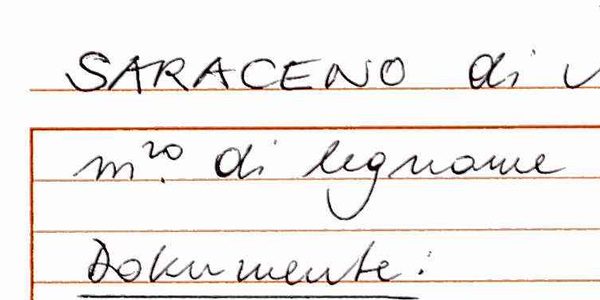 SARACENO di
m.ro di legname
Dokumente: